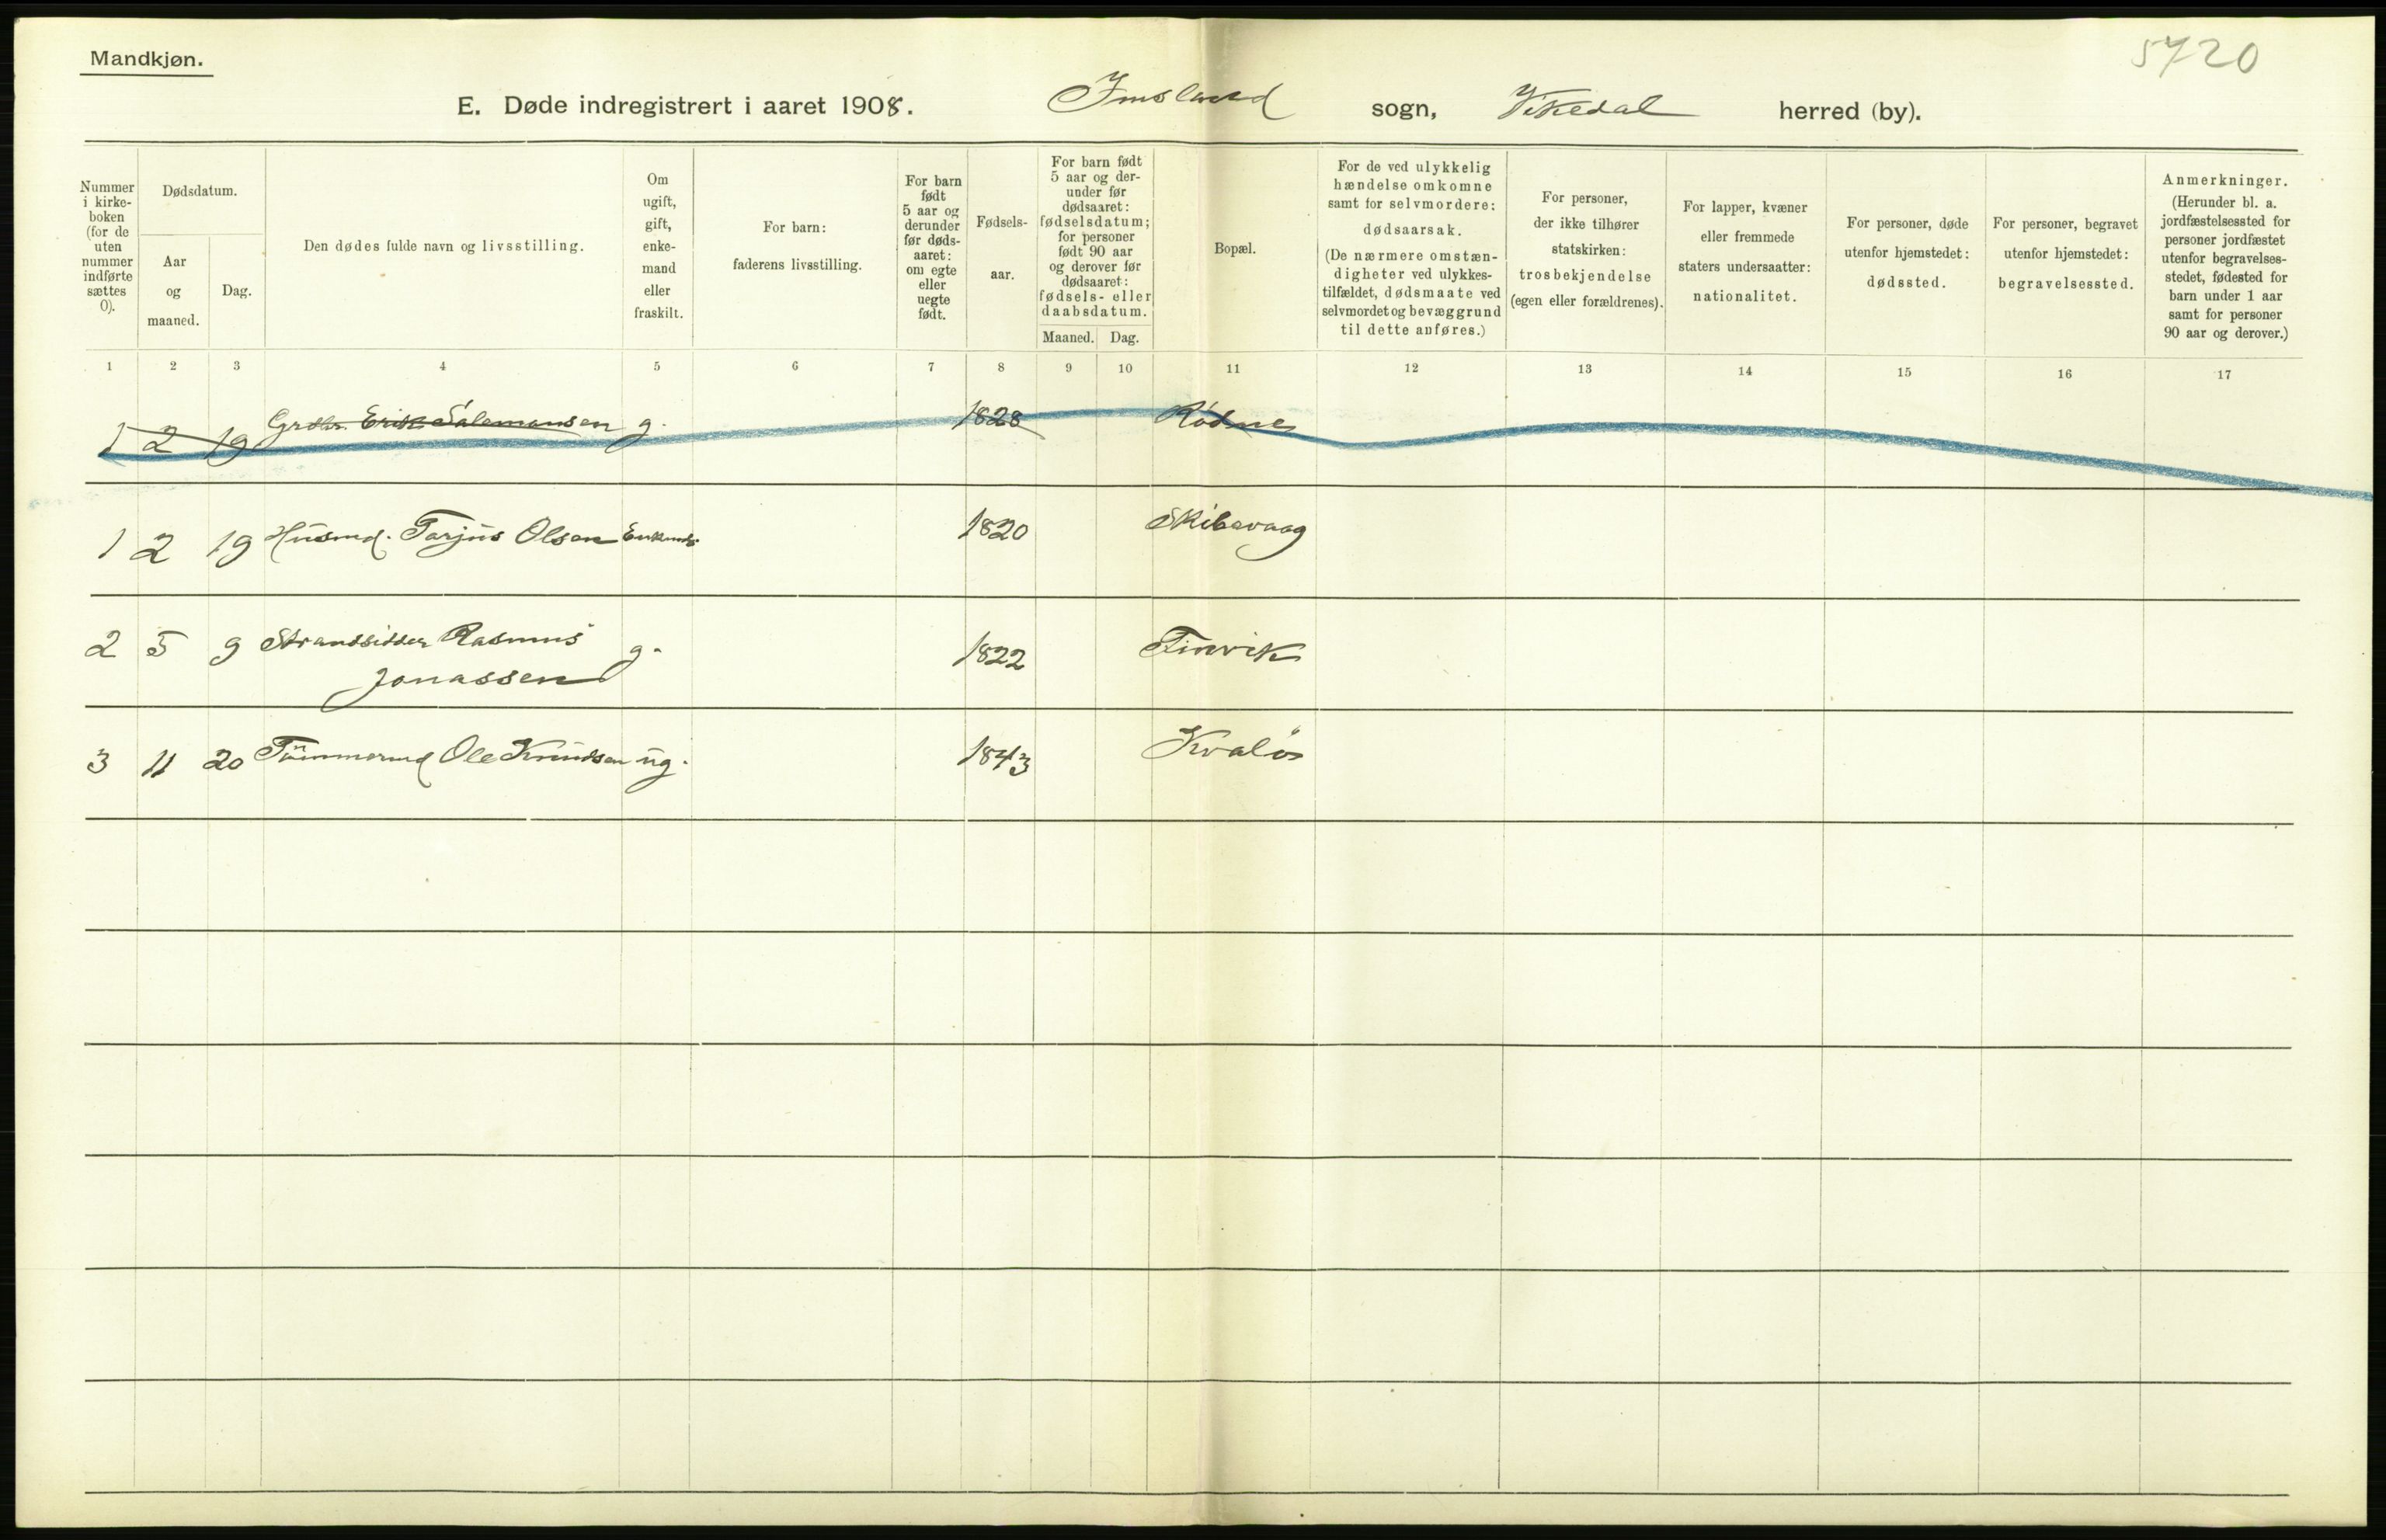 Mandkjøn.
5720
E. Døde indregistrert i aaret 1908. Imsland sogn, Vikedal herred (by).
Nummer
i kirke-
boken
(for de
uten
nummer
indførte
sættes
0).
Dødsdatum.
Aar
og
maaned.
Dag.
Den dødes fulde navn og livsstilling.
Om
ugift,
gift,
enke-
mand
eller
fraskilt.
For barn:
faderens livsstilling.
For barn
født
5 aar og
derunder
før døds-
aaret:
om egte
eller
uegte
født.
Fødsels-
aar.
For barn født
5 aar og der-
under før
dødsaaret:
fødselsdatum;
for personer
født 90 aar
og derover før
dødsaaret:
fødsels- eller
daabsdatum.
Maaned. Dag.
Bopæl.
For de ved ulykkelig
hændelse omkomne
samt for selvmordere:
dødsaarsak.
(De nærmere omstæn-
digheter ved ulykkes-
tilfældet, dødsmaate ved
selvmordet og bevæggrund
til dette anføres.)
For personer,
der ikke tilhører
statskirken:
trosbekjendelse
(egen eller forældrenes).
For lapper, kvæner
eller fremmede
staters undersaatter:
nationalitet.
For personer, døde
utenfor hjemstedet:
dødssted.
For personer, begravet
utenfor hjemstedet:
begravelsessted.
Anmerkninger.
(Herunder bl. a.
jordfæstelsessted for
personer jordfæstet
utenfor begravelses-
stedet, fødested for
barn under 1 aar
samt for personer
90 aar og derover.)
1 2 3 4 5 6 7 8 9 10 11 12 13 14 15 16 17
1 2 19 Grdbr. Erik Salemonsen g. 1828 Rødne
1 2 19 Husmd. Tarjus Olsen Enkemd. 1820 Skibavaag
2 5 9 Strandsidder Rasmus g. 1822 Tinvik
Jonassen
3 11 20 Tömmermd Ole Knudsen ug. 1843 Kvalös